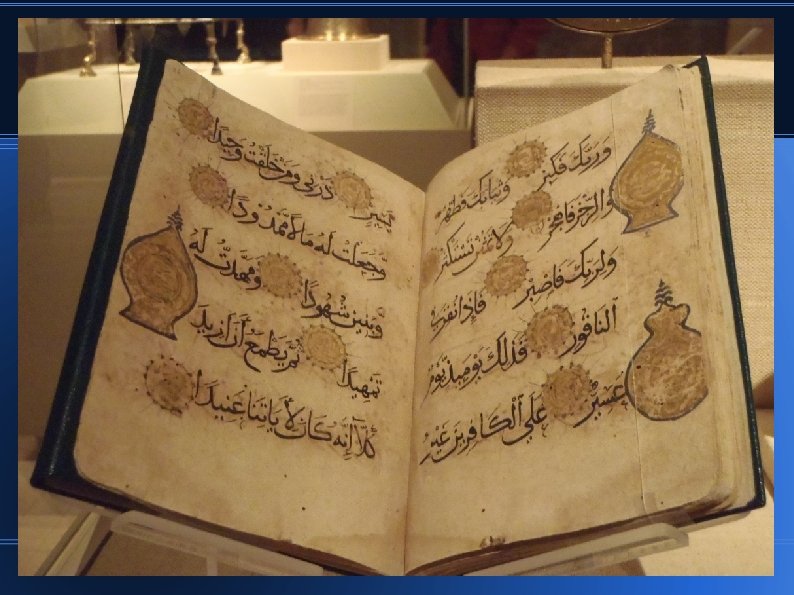 وَرَبَّكَ فَكَبِّرْ وَثِيَابَكَ فَطَهِّرْ
وَالرُّجْزَ فَاهْجُرْ وَلَا تَمْنُنْ تَسْتَكْثِرُ
وَلِرَبِّكَ فَاصْبِرْ فَإِذَا نُقِرَ فِي
النَّاقُورِ فَذَلِكَ يَوْمَئِذٍ يَوْمٌ
عَسِيرٌ عَلَى الْكَافِرِينَ غَيْرُ
يَسِيرٍ ذَرْنِي وَمَنْ خَلَقْتُ وَحِيدًا
وَجَعَلْتُ لَهُ مَالًا مَّمْدُودًا
وَبَنِينَ شُهُودًا وَمَهَّدتُّ لَهُ
تَمْهِيدًا ثُمَّ يَطْمَعُ أَنْ أَزِيدَ
كَلَّا إِنَّهُ كَانَ لِآيَاتِنَا عَنِيدًا